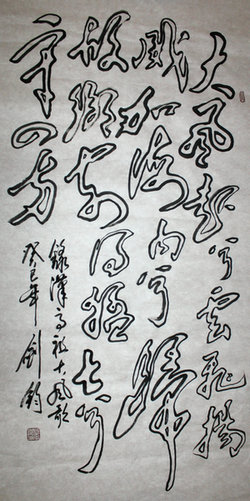 大風起兮雲飛揚
威加海内兮歸
故鄉安得猛士兮
守四方
錄漢高祖大風歌
癸巳年